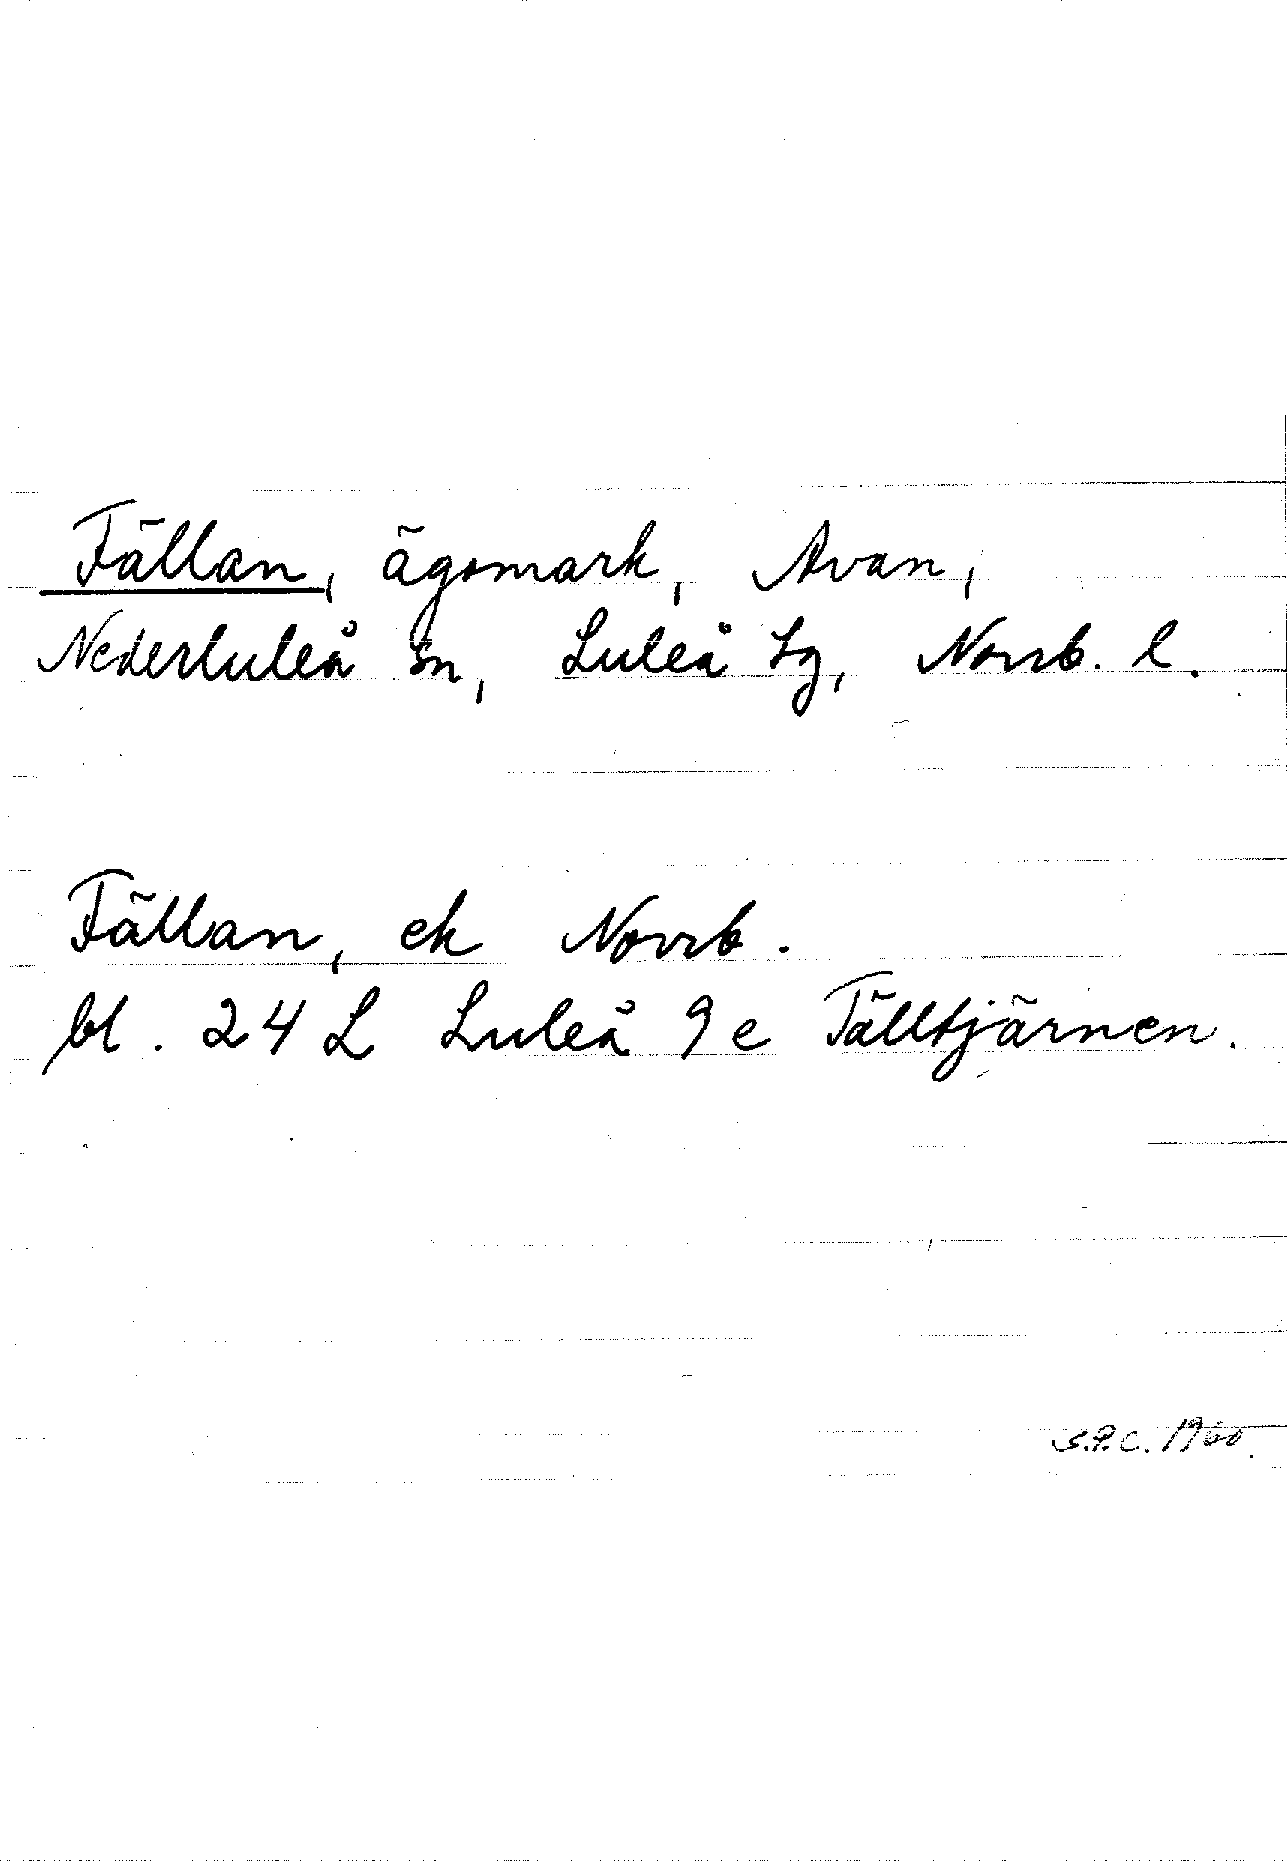 Fällan, ägomark, Avan,
Nederluleå sn, Luleå tg, Norrb. l.
Fällan, ek Norrb.
bl. 24 L Luleå 9 e Tälltjärnen.
S.P.C. 1960.